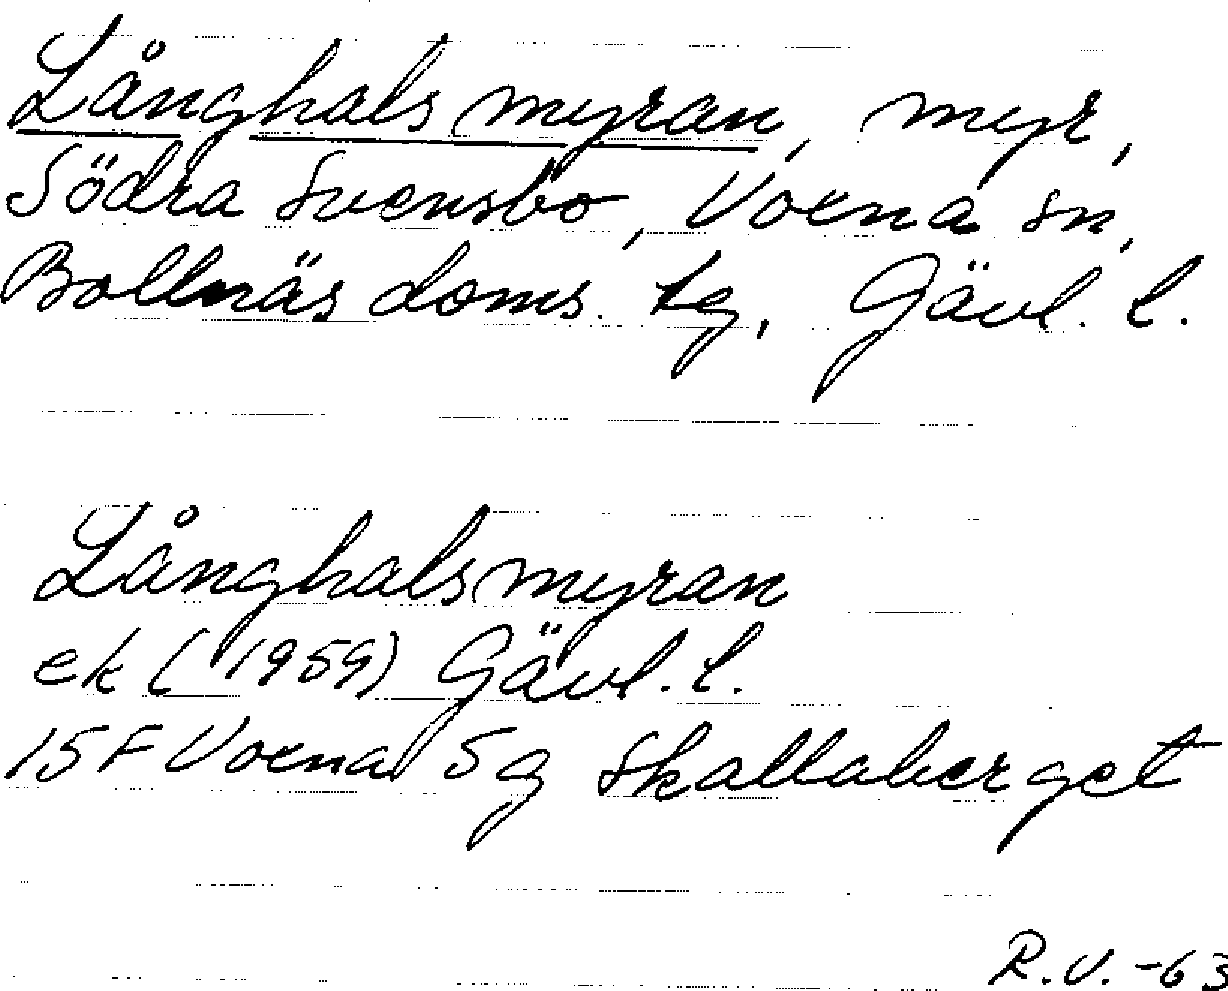 Långhalsmyran, myr,
Södra Svensbo, Voxna sn,
Bollnäs doms. tg, Gävl. l.
Långhalsmyran
ek (1959) Gävl. l.
15F Voxna 5g Skallaberget
R.V. -63